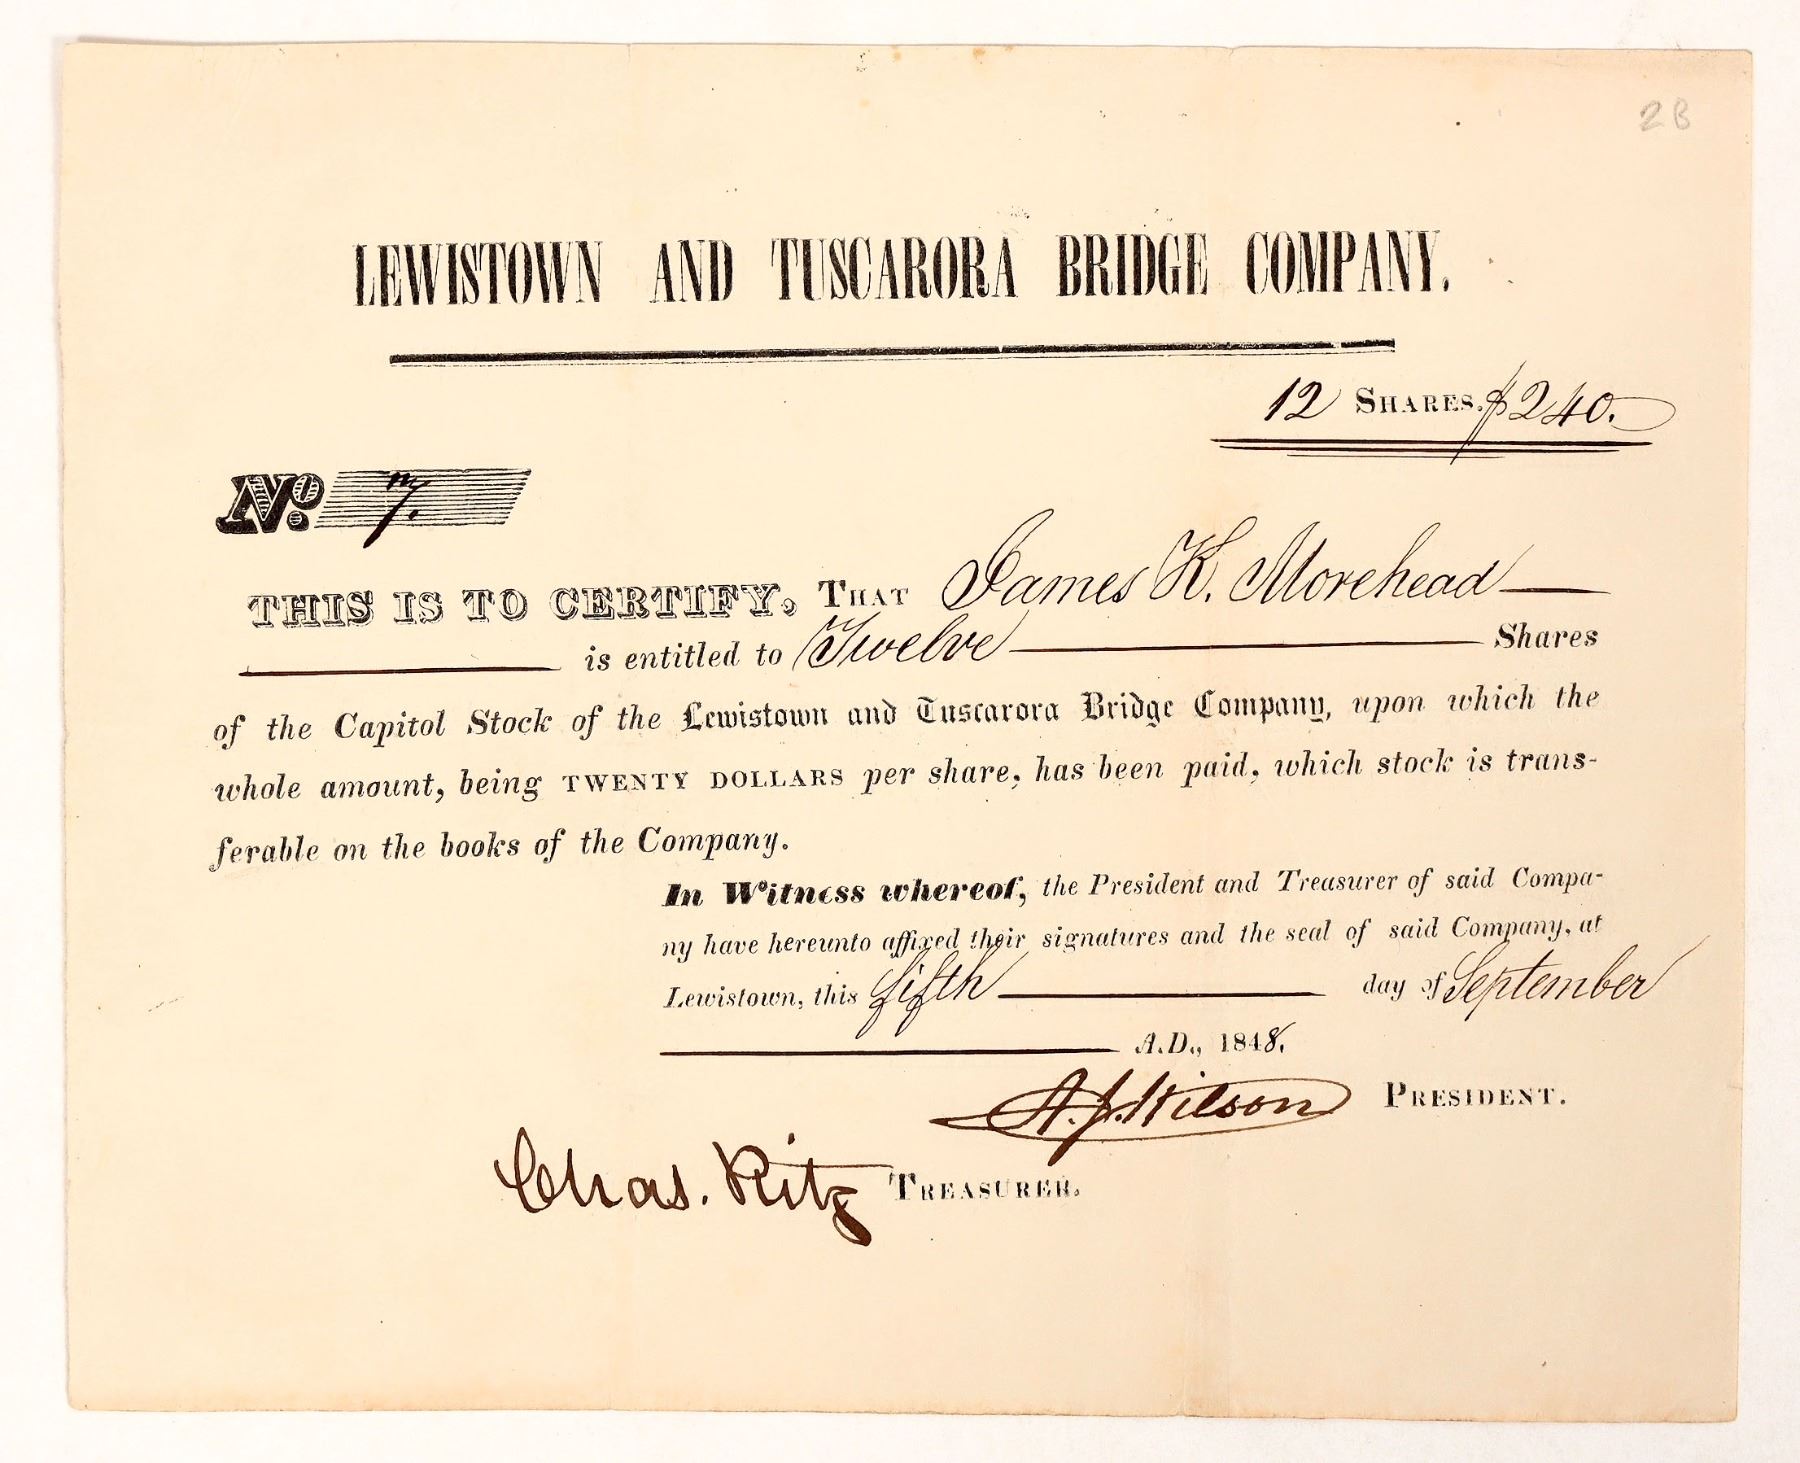 2B
LEWISTOWN AND TUSCARORA BRIDGE COMPANY.
12 SHARES. $240.
No. 7.
THIS IS TO CERTIFY, THAT James K. Morehead
is entitled to Twelve Shares
of the Capitol Stock of the Lewistown and Tuscarora Bridge Company, upon which the
whole amount, being TWENTY DOLLARS per share, has been paid, which stock is trans-
ferable on the books of the Company.
In Witness whereof, the President and Treasurer of said Compa-
ny have hereunto affixed their signatures and the seal of said Company, at
Lewistown, this fifth day of September
A.D., 1848.
A. J. Wilson PRESIDENT.
Chas. Ritz TREASURER.